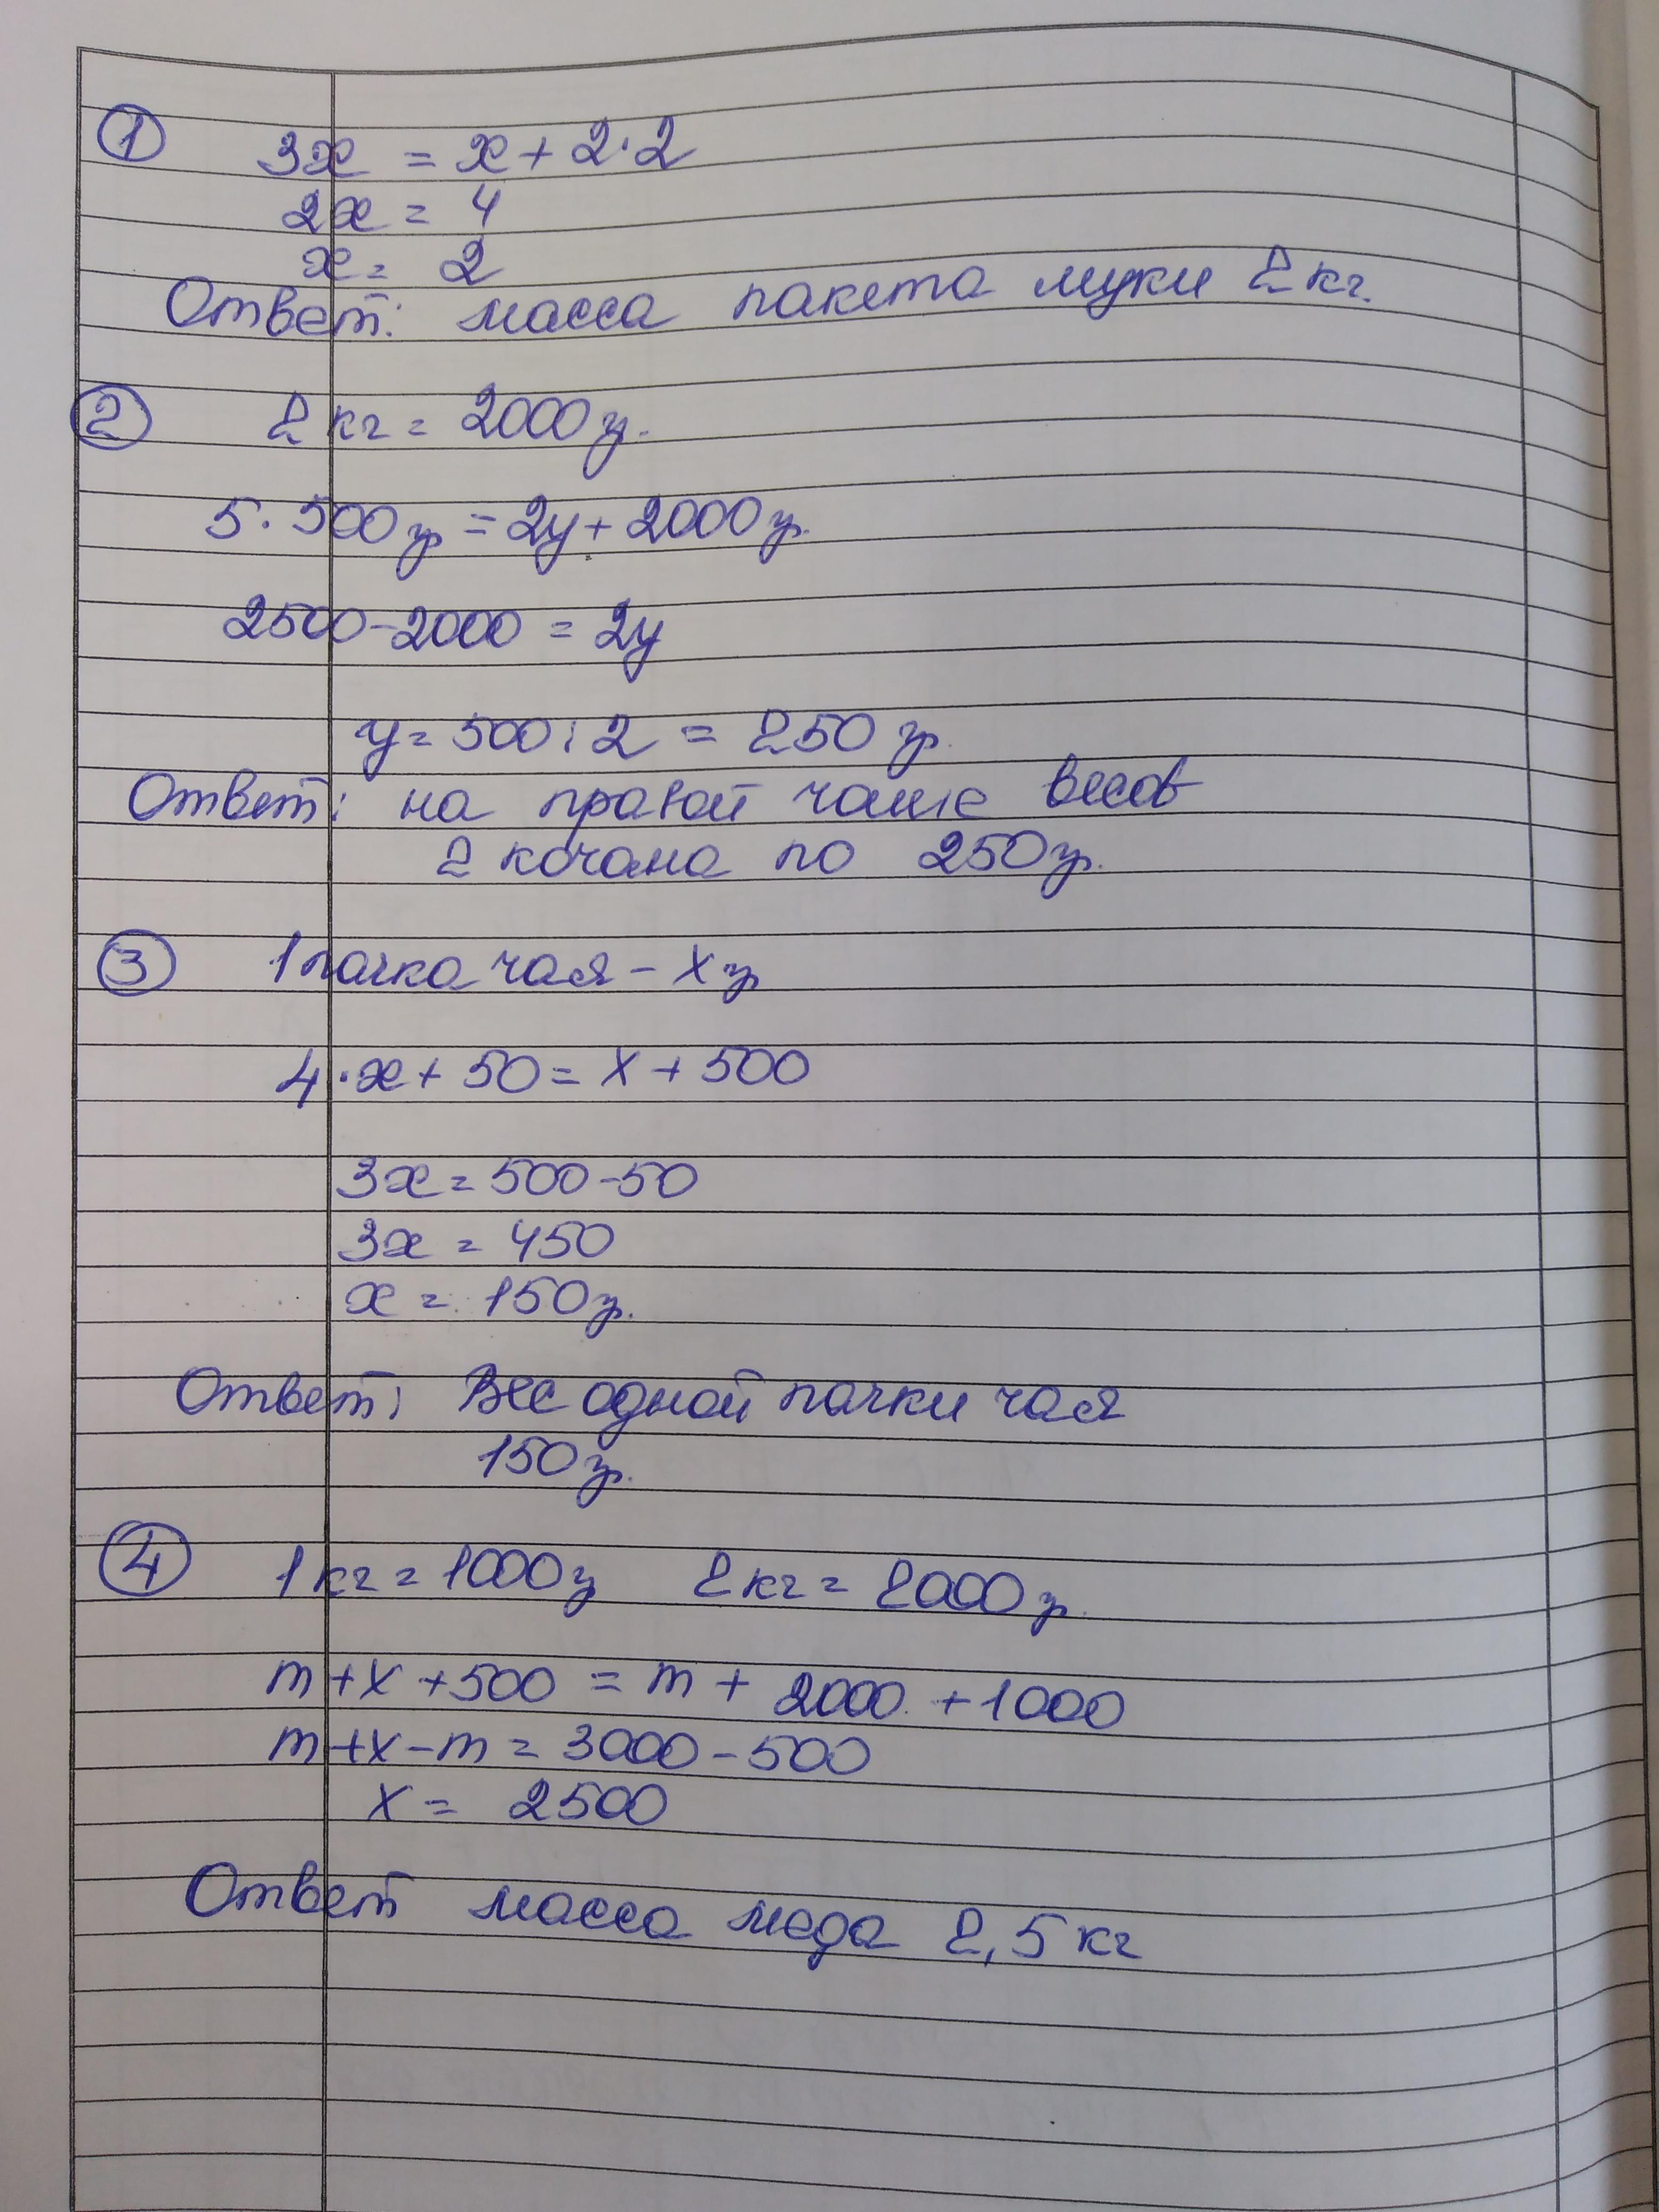 1 3x = x + 2·2
2x = 4
x = 2
Ответ: масса пакета муки 2 кг.
2 2 кг = 2000 гр.
5·500 гр = 2y + 2000 гр.
2500-2000 = 2y
y = 500:2 = 250 гр
Ответ: на правой чаше весов
2 кочана по 250 гр.
3 1 пачка чая - x гр
4·x + 50 = x + 500
3x = 500-50
3x = 450
x = 150 гр.
Ответ: Вес одной пачки чая
150 гр.
4 1 кг = 1000 г 2 кг = 2000 гр.
m + x + 500 = m + 2000 + 1000
m + x - m = 3000 - 500
x = 2500
Ответ масса меда 2,5 кг